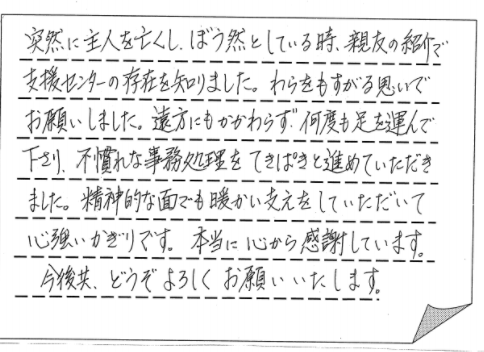 突然に主人を亡くし、ぼう然としている時、親友の紹介で
支援センターの存在を知りました。わらをもすがる思いで
お願いしました。遠方にもかかわらず、何度も足を運んで
下さり、不慣れな事務処理をてきぱきと進めていただき
ました。精神的な面でも暖かい支えをしていただいて
心強いかぎりです。本当に心から感謝しています。
今後共、どうぞよろしくお願いいたします。